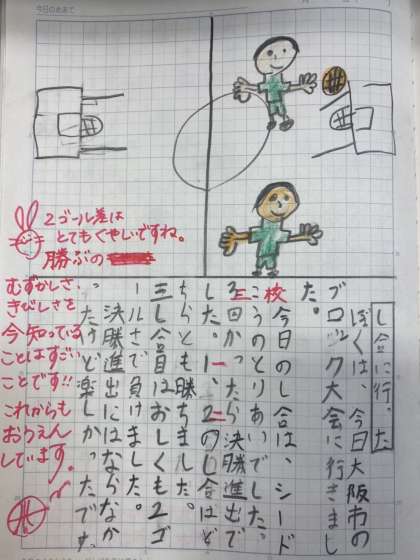 今日のめあて
し合に行った
ぼくは、今日大阪市の
ブロック大会に行きまし
た。
今日のし合は、シード
校
こうのとりあいでした。
三
回かったら決勝進出で
した。一、二のし合はど
ちらとも勝ちました。
三し合目はおしくも2ゴ
ールさで負けました。
決勝進出にはならなか
ったけど楽しかったです
。
2ゴール差は
とてもくやしいですね。
勝ぶの
むずかしさ、
きびしさを
今知っている
ことはすごい
ことです!!
これからも
おうえん
しています。